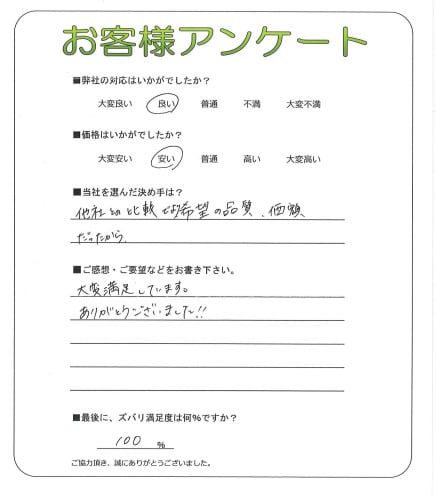 お客様アンケート
■弊社の対応はいかがでしたか？
大変良い 良い 普通 不満 大変不満
■価格はいかがでしたか？
大変安い 安い 普通 高い 大変高い
■当社を選んだ決め手は？
他社との比較で希望の品質、価額
だったから。
■ご感想・ご要望などをお書き下さい。
大変満足しています。
ありがとうございました!!
■最後に、ズバリ満足度は何%ですか？
100 %
ご協力頂き、誠にありがとうございました。